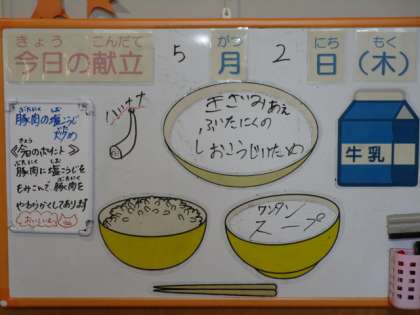 きょう こんだて がつ にち もく
今日の献立 5月2日(木)
ぶたにく しお
豚肉の塩こうじ
炒め
きょう
《今日のポイント》
ぶたにく しお
豚肉に塩こうじを
もみこんで、豚肉を
やわらかくしてあります
おいしいよ
バナナ
ぶたにくの
しおこうじいため
牛乳
ワンタン
スープ